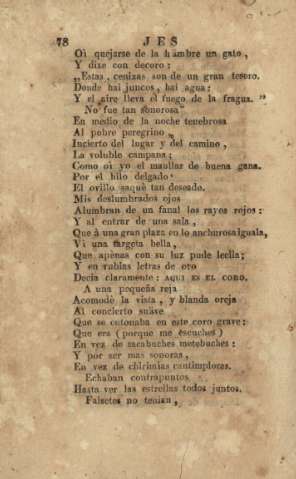 78 J E S
Oí quejarse de la hambre un gato,
Y dixe con decoro:
„Estas, cenizas son de un gran tesoro.
Donde hai juncos, hai agua:
Y el aire lleva el fuego de la fragua."
No fue tan sonorosa
En medio de la noche tenebrosa
Al pobre peregrino,
Incierto del lugar y del camino,
La voluble campana;
Como oí yo el maullar de buena gana.
Por el hilo delgado
El ovillo saquè tan deseado.
Mis deslumbrados ojos
Alumbran de un fanal los rayos rojos:
Y al entrar de una sala,
Que à una gran plaza en lo anchurosa iguala,
Vi una targeta bella,
Que apènas con su luz pude leella;
Y en rublas letras de oro
Decia claramente: AQUI ES EL CORO.
A una pequeña reja
Acomodè la vista, y blanda oreja
Al concierto suàve
Que se entonaba en este coro grave:
Que era (porque me escuches)
En vez de sacabuches metebuches:
Y por ser mas sonoras,
En vez de chirimías cantimploras.
Echaban contrapuntos
Hasta ver las estrellas todos juntos.
Falsetes no tenian,